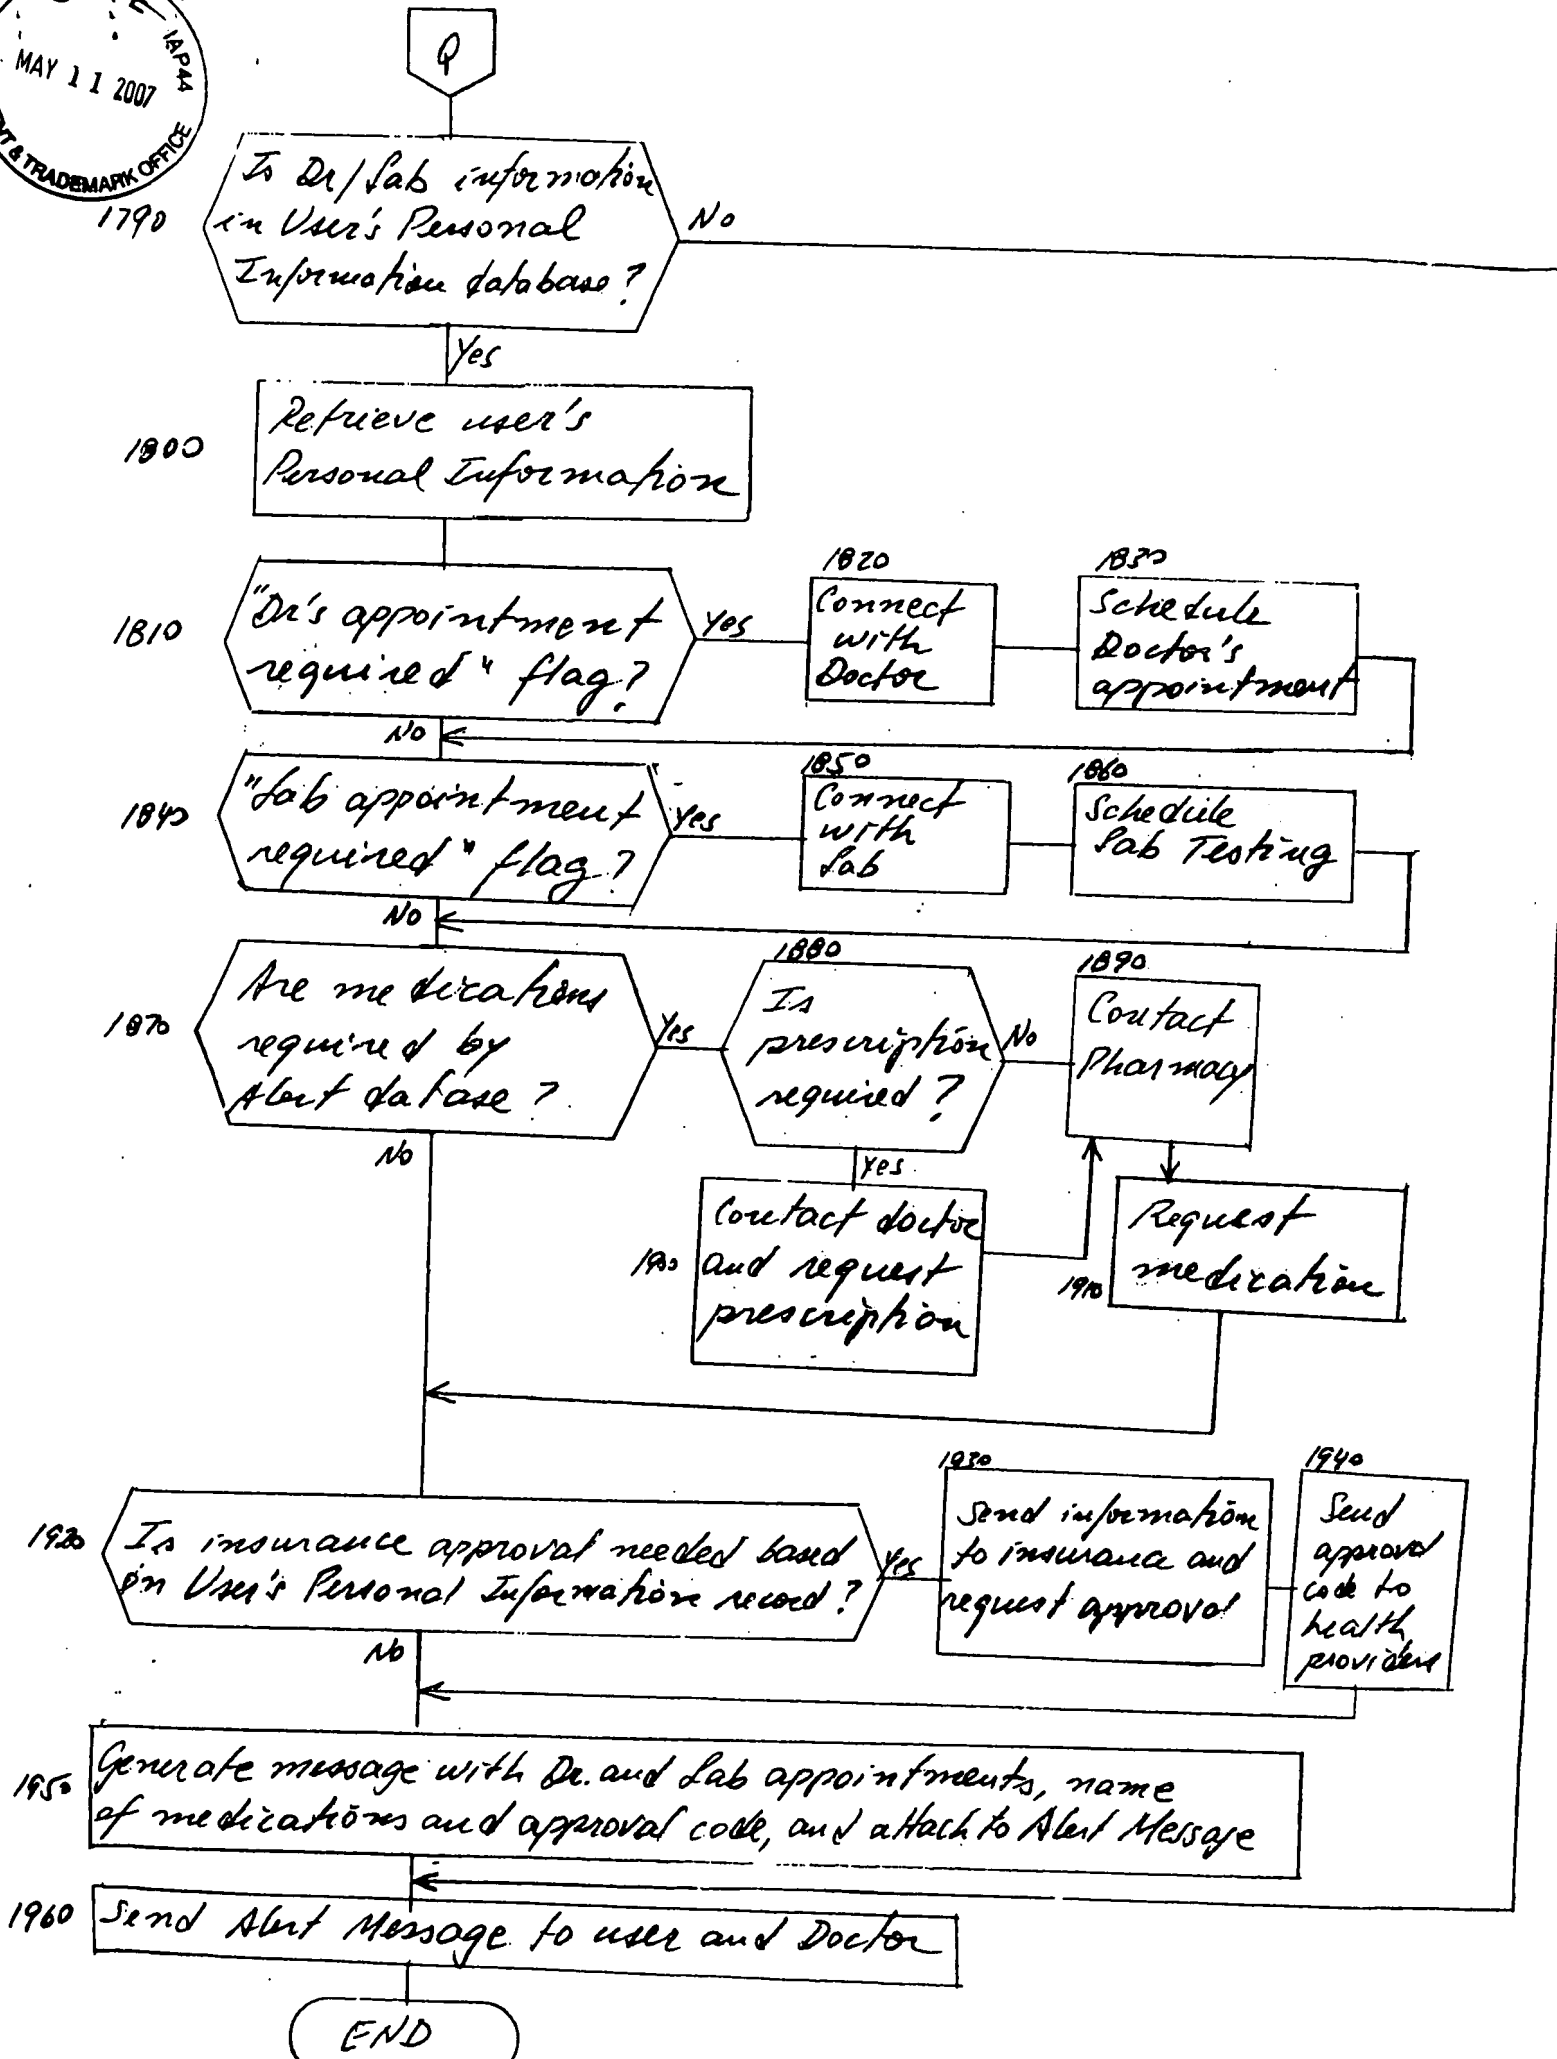 IAP44
MAY 11 2007
& TRADEMARK OFFICE
Q
1790
Is Dr/Lab information
in User's Personal
Information database?
No
Yes
1800
Retrieve user's
Personal Information
1810
"Dr's appointment
required" flag?
Yes
1820
Connect
with
Doctor
1830
Schedule
Doctor's
appointment
No
1840
"Lab appointment
required" flag?
Yes
1850
Connect
with
Lab
1860
Schedule
Lab Testing
No
1870
Are medications
required by
Alert datase?
Yes
1880
Is
prescription
required?
No
1890
Contact
Pharmacy
No
Yes
1900
Contact doctor
and request
prescription
1910
Request
medication
1920
Is insurance approval needed based
on User's Personal Information record?
Yes
1930
Send information
to insurance and
request approval
1940
Send
approval
code to
health
providers
No
1950
Generate message with Dr. and Lab appointments, name
of medications and approval code, and attach to Alert Message
1960
Send Alert Message to user and Doctor
END